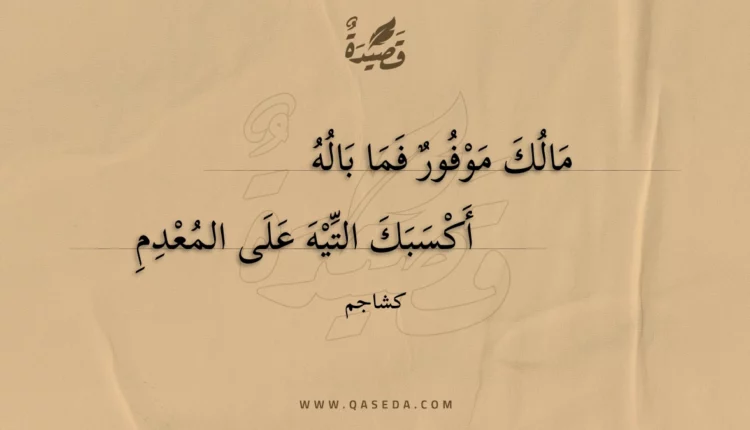 قَصِيدَةٌ
مَالُكَ مَوْفُورٌ فَمَا بَالُهُ
أَكْسَبَكَ التِّيْهَ عَلَى المُعْدِمِ
كشاجم
WWW.QASEDA.COM